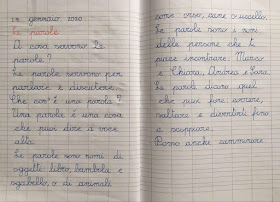 14 gennaio 2020
Le parole
A cosa servono le
parole?
Le parole servono per
parlare e discutere.
Che cos'è una parola?
Una parola è una cosa
che puoi dire a voce
alta.
Le parole sono nomi di
oggetti libro, bambola e
sgabello, o di animali
come orso, cane o uccello.
Le parole sono i nomi
delle persone che ti
piace incontrare: Marco
e Chiara, Andrea e Sara.
Le parole dicono quel
che puoi fare: correre,
saltare e divertirti fino
a scoppiare.
Posso anche camminare